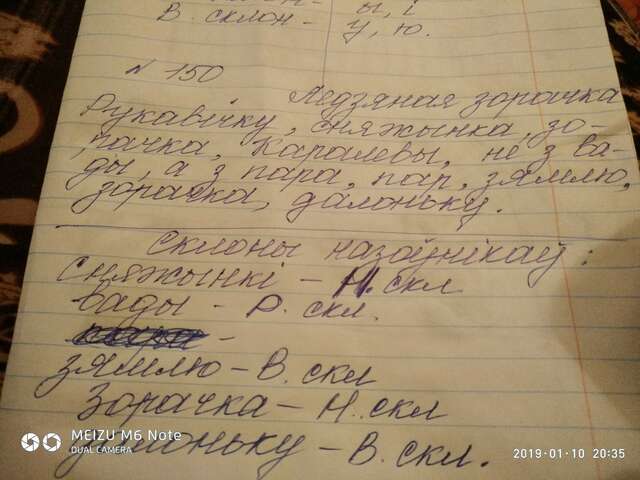 В. склон - ы, і
у, ю.
№ 150
Ледзяная зорачка
Рукавічку, сняжынка, зо-
рачка, Каралевы, не з ва-
ды, а з пара, пар, зямлю,
зорачка, далоньку.
Склоны назоўнікаў:
Сняжынкі - Н. скл
Вады - Р. скл.
зямлю - В. скл
Зорачка - Н. скл
далоньку - В. скл.
MEIZU M6 Note
DUAL CAMERA
2019-01-10 20:35